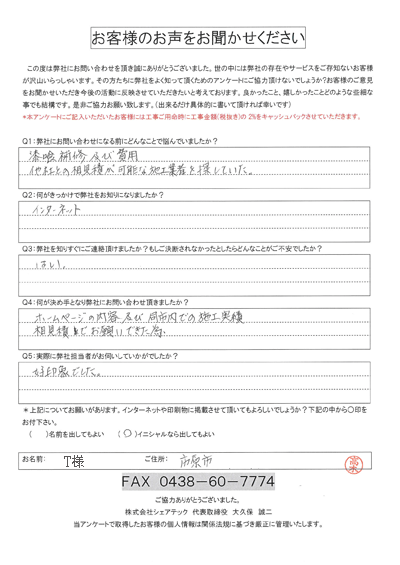 お客様のお声をお聞かせください
この度は弊社にお問い合わせを頂き誠にありがとうございました。世の中には弊社の存在やサービスをご存知ないお客様
が沢山いらっしゃいます。その方たちに弊社をよく知って頂くためのアンケートにご協力頂けないでしょうか?お客様のご意見
をお聞かせいただき今後の活動に反映させていただきたいと考えております。良かったこと、嬉しかったことどのような些細な
事でも結構です。是非ご協力お願い致します。(出来るだけ具体的に書いて頂ければ幸いです)
*本アンケートにご記入いただいたお客様には工事ご用命時に工事金額(税抜き)の2%をキャッシュバックさせていただきます。
Q1:弊社にお問い合わせになる前にどんなことで悩んでいましたか?
漆喰補修及び費用
他社との相見積が可能な施工業者を探していた。
Q2:何がきっかけで弊社をお知りになりましたか?
インターネット
Q3:弊社を知りすぐにご連絡頂けましたか?もしご決断されなかったとしたらどんなことがご不安でしたか?
はい。
Q4:何が決め手となり弊社にお問い合わせ頂きましたか?
ホームページの内容及び同市内での施工実績
相見積までお願いできた為
Q5:実際に弊社担当者がお伺いしていかがでしたか?
好印象でした。
*上記についてお願いがあります。インターネットや印刷物に掲載させて頂いてもよろしいでしょうか?下記の中から○印を
お付下さい。
( )名前を出してもよい (○)イニシャルなら出してもよい
お名前: T様 ご住所: 市原市
FAX 0438-60-7774
ご協力ありがとうございました。
株式会社シェアテック 代表取締役 大久保 誠二
当アンケートで取得したお客様の個人情報は関係法規に基づき厳正に管理いたします。